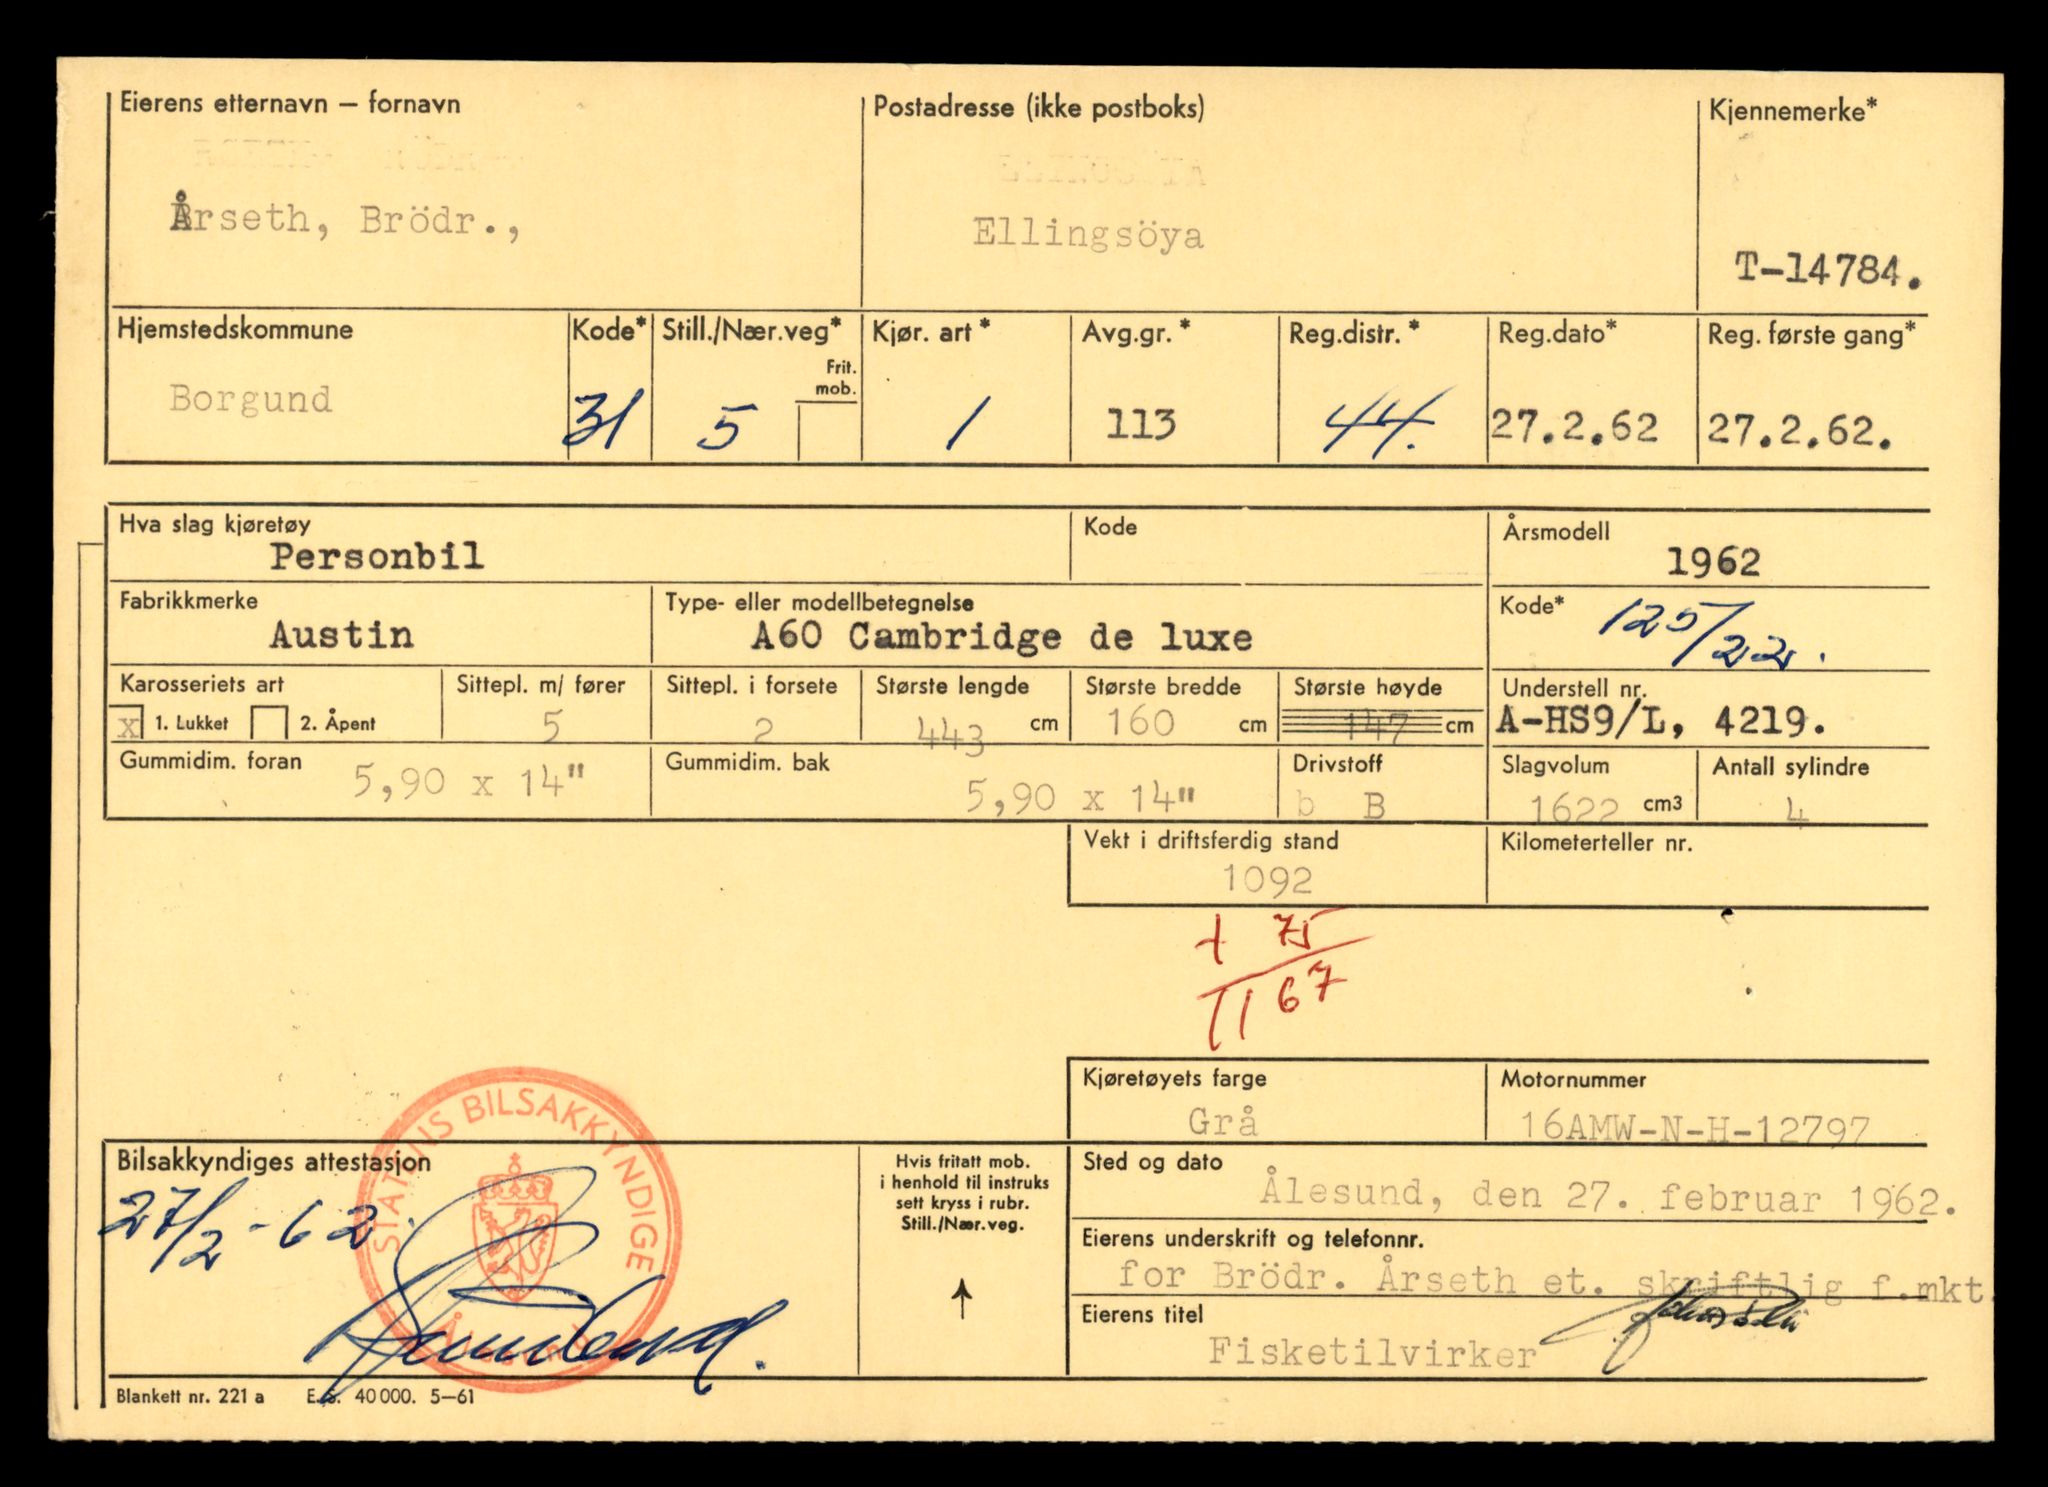 Eierens etternavn — fornavn
Årseth, Brödr.,
Postadresse (ikke postboks)
Ellingsöya
Kjennemerke*
T-14784.
Hjemstedskommune
Borgund
Kode*
31
Still./Nær.veg*
Frit.
mob.
5
Kjør. art*
1
Avg.gr.*
113
Reg.distr.*
44.
Reg.dato*
27.2.62
Reg. første gang*
27.2.62.
Hva slag kjøretøy
Personbil
Kode
Årsmodell
1962
Fabrikkmerke
Austin
Type- eller modellbetegnelse
A60 Cambridge de luxe
Kode*
125/22.
Karosseriets art
x 1. Lukket 2. Åpent
Sittepl. m/ fører
5
Sittepl. i forsete
2
Største lengde
443 cm
Største bredde
160 cm
Største høyde
147 cm
Understell nr.
A-HS9/L, 4219.
Gummidim. foran
5,90 x 14"
Gummidim. bak
5,90 x 14"
Drivstoff
b B
Slagvolum
1622 cm3
Antall sylindre
4
Vekt i driftsferdig stand
1092
Kilometerteller nr.
+ 75
1167
Kjøretøyets farge
Grå
Motornummer
16AMW-N-H-12797
Bilsakkyndiges attestasjon
27/2-62.
STATENS BILSAKKYNDIGE
Hvis fritatt mob.
i henhold til instruks
sett kryss i rubr.
Still./Nær.veg.
Sted og dato
Ålesund, den 27. februar 1962.
Eierens underskrift og telefonnr.
for Brödr. Årseth et. skriftlig f.mkt.
Eierens titel
Fisketilvirker
Blankett nr. 221 a E.S. 40000. 5—61